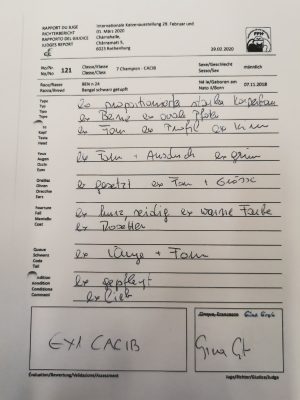 RAPPORT DU JUGE
RICHTERBERICHT
RAPPORTO DEL GIUDICE
JUDGES REPORT
Internationale Katzenausstellung 29. Februar und
01. März 2020
Chamahalle,
6023 Rothenburg
29.02.2020
No/Nr. 121 Classe/Klasse 7 Champion - CACIB Sexe/Geschlecht männlich
No/No Classe/Class Sesso/Sex
Race/Rasse BEN n 24 Né le/Geboren am 07.11.2018
Razza/Breed Bengal schwarz getupft Nato il/Born
Type ex proportionierter starker Körperbau
Typ
Tipo ex Beine ex ovale Pfote
Type
Tête ex Form ex Profil ex Kinn
Kopf
Testa
Head
Yeux ex Form + Ausdruck ex grün
Augen
Occhi
Eyes
Oreilles ex gesetzt ex Form + Grösse
Ohren
Orecchie
Ears
Fourrure ex kurz, seidig ex warme Farbe
Fell
Mantello ex Rosetten
Coat
Queue ex Länge + Form
Schwanz
Coda
Tail
Condition ex gepflegt
Kondition
Condizione ex lieb
Conditions
Comment
EX1 CACIB
Gina
Evaluation/Bewertung/Validazione/Assessment
Juge/Richter/Giudice/Judge